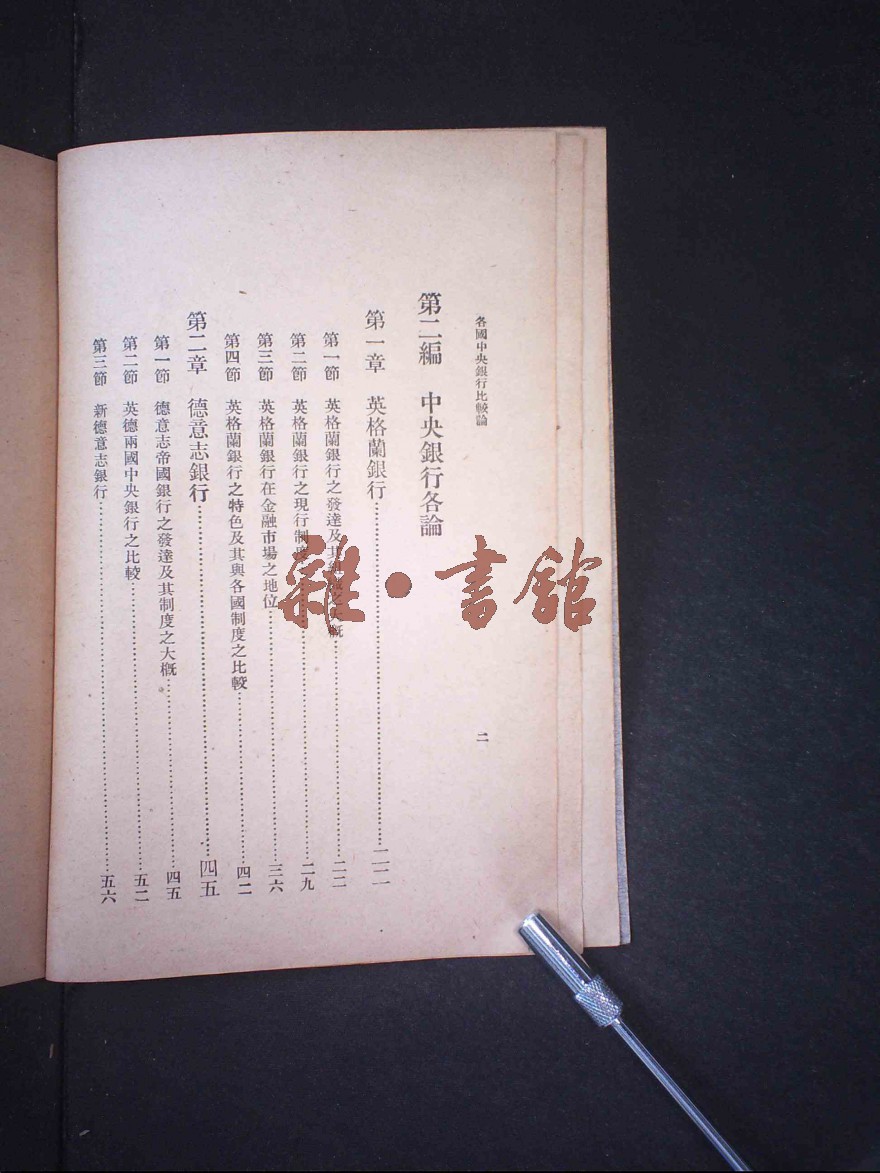 各國中央銀行比較論
二
第二編 中央銀行各論
第一章 英格蘭銀行……二二
第一節 英格蘭銀行之發達及其組織之大概……二二
第二節 英格蘭銀行之現行制度……二九
第三節 英格蘭銀行在金融市場之地位……三六
第四節 英格蘭銀行之特色及其與各國制度之比較……四二
第二章 德意志銀行……四五
第一節 德意志帝國銀行之發達及其制度之大概……四五
第二節 英德兩國中央銀行之比較……五二
第三節 新德意志銀行……五六
雜·書館